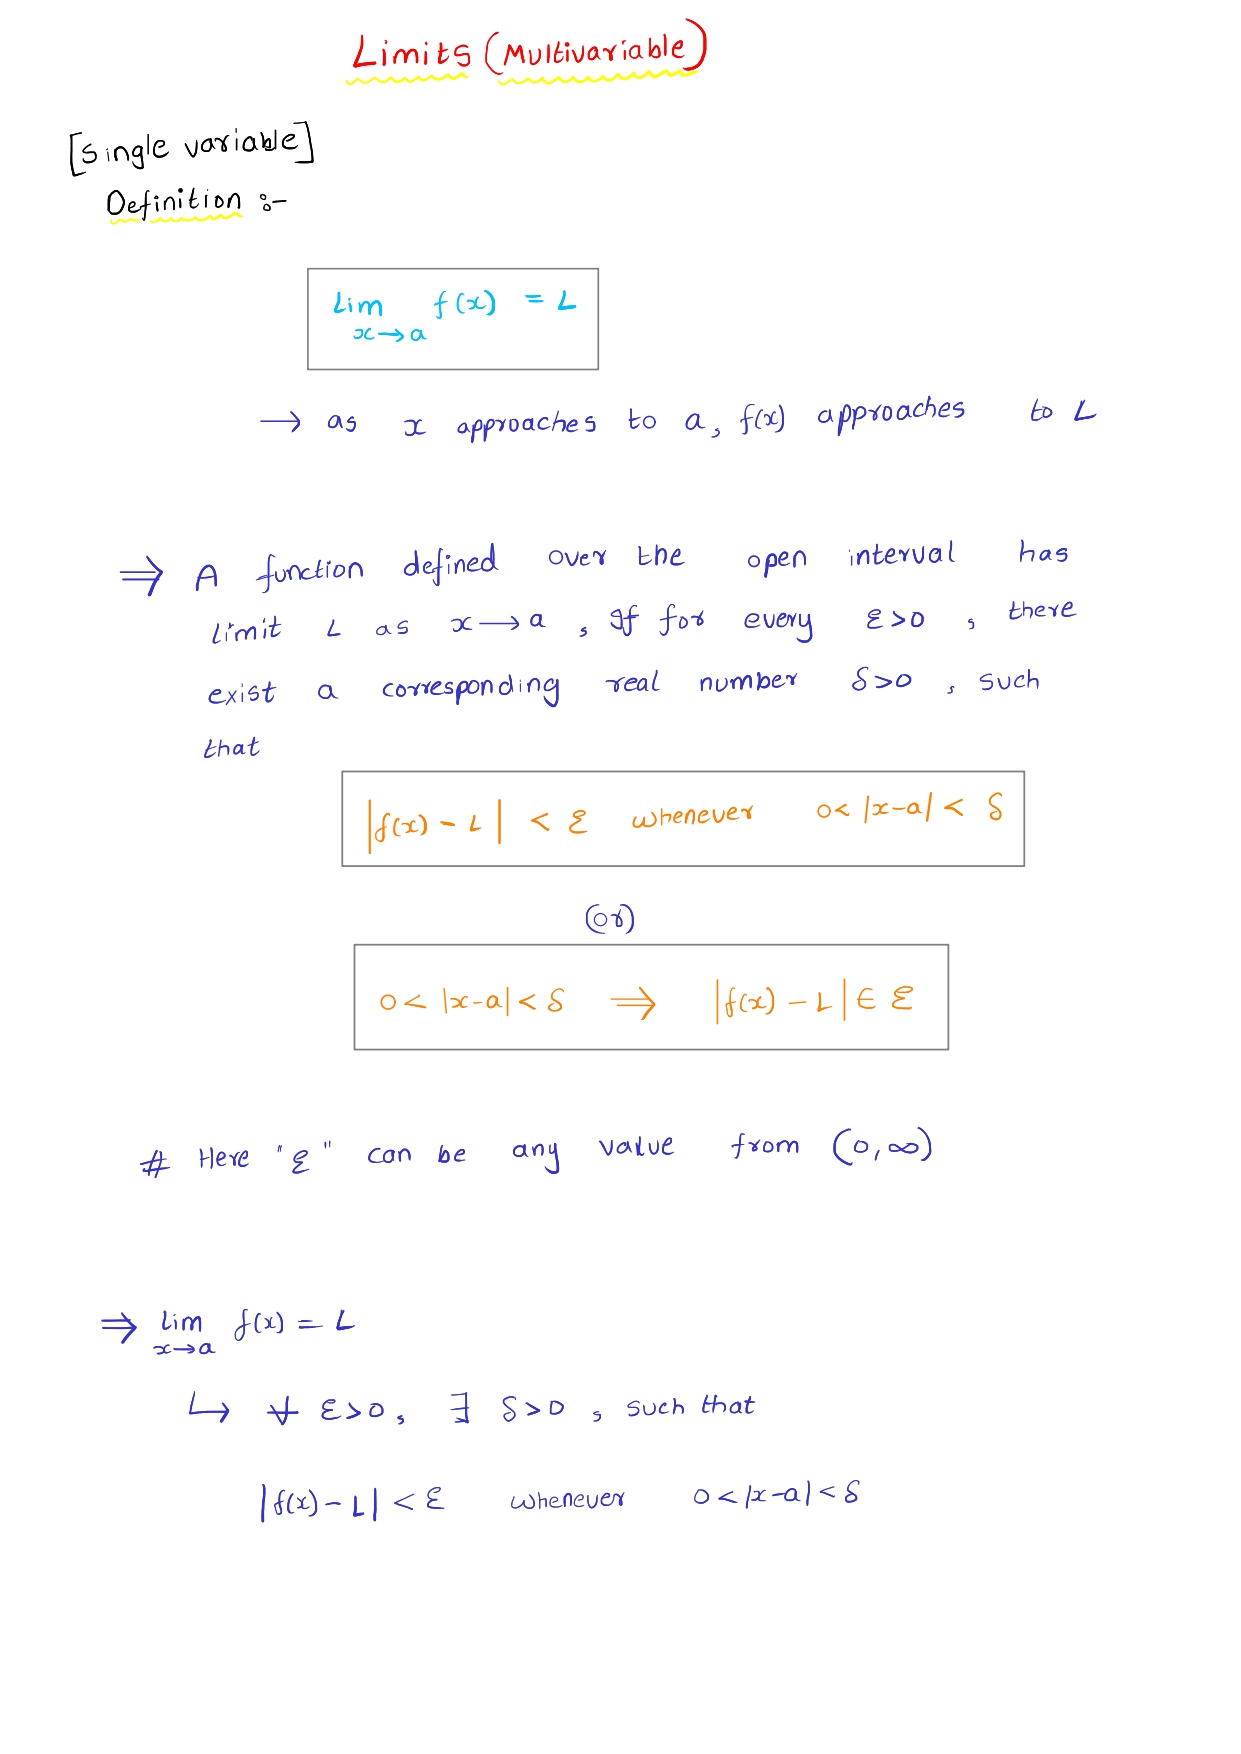 Limits (Multivariable)
[single variable]
Definition :-
lim f(x) = L
x→a
→ as x approaches to a, f(x) approaches to L
⇒ A function defined over the open interval has
limit L as x→a , If for every ε>0 , there
exist a corresponding real number δ>0 , such
that
|f(x) - L| < ε whenever 0< |x-a| < δ
(or)
0< |x-a| < δ ⇒ |f(x) - L| ∈ ε
# Here "ε" can be any value from (0,∞)
⇒ lim f(x) = L
x→a
↳ ∀ ε>0, ∃ δ>0 , such that
|f(x) - L| < ε whenever 0 < |x-a| < δ